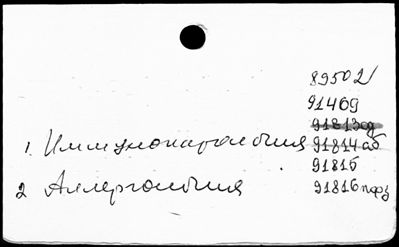 89502
91469
91813од
1. Иммунопатология 91814аб
91815
2 Аллергология 91816